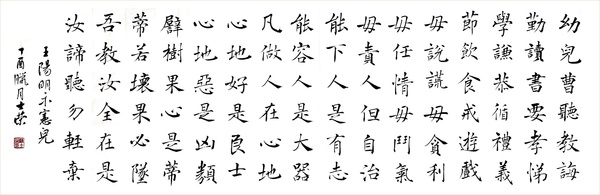 幼兒曹聽教誨
勤讀書要孝悌
學謙恭循禮義
節飲食戒遊戲
毋說謊毋貪利
毋任情毋鬥氣
毋責人但自治
能下人是有志
能容人是大器
凡做人在心地
心地好是良士
心地惡是凶類
譬樹果心是蒂
蒂若壞果必墜
吾教汝全在是
汝諦聽勿輕棄
王陽明示憲兒
丁酉臘月士榮